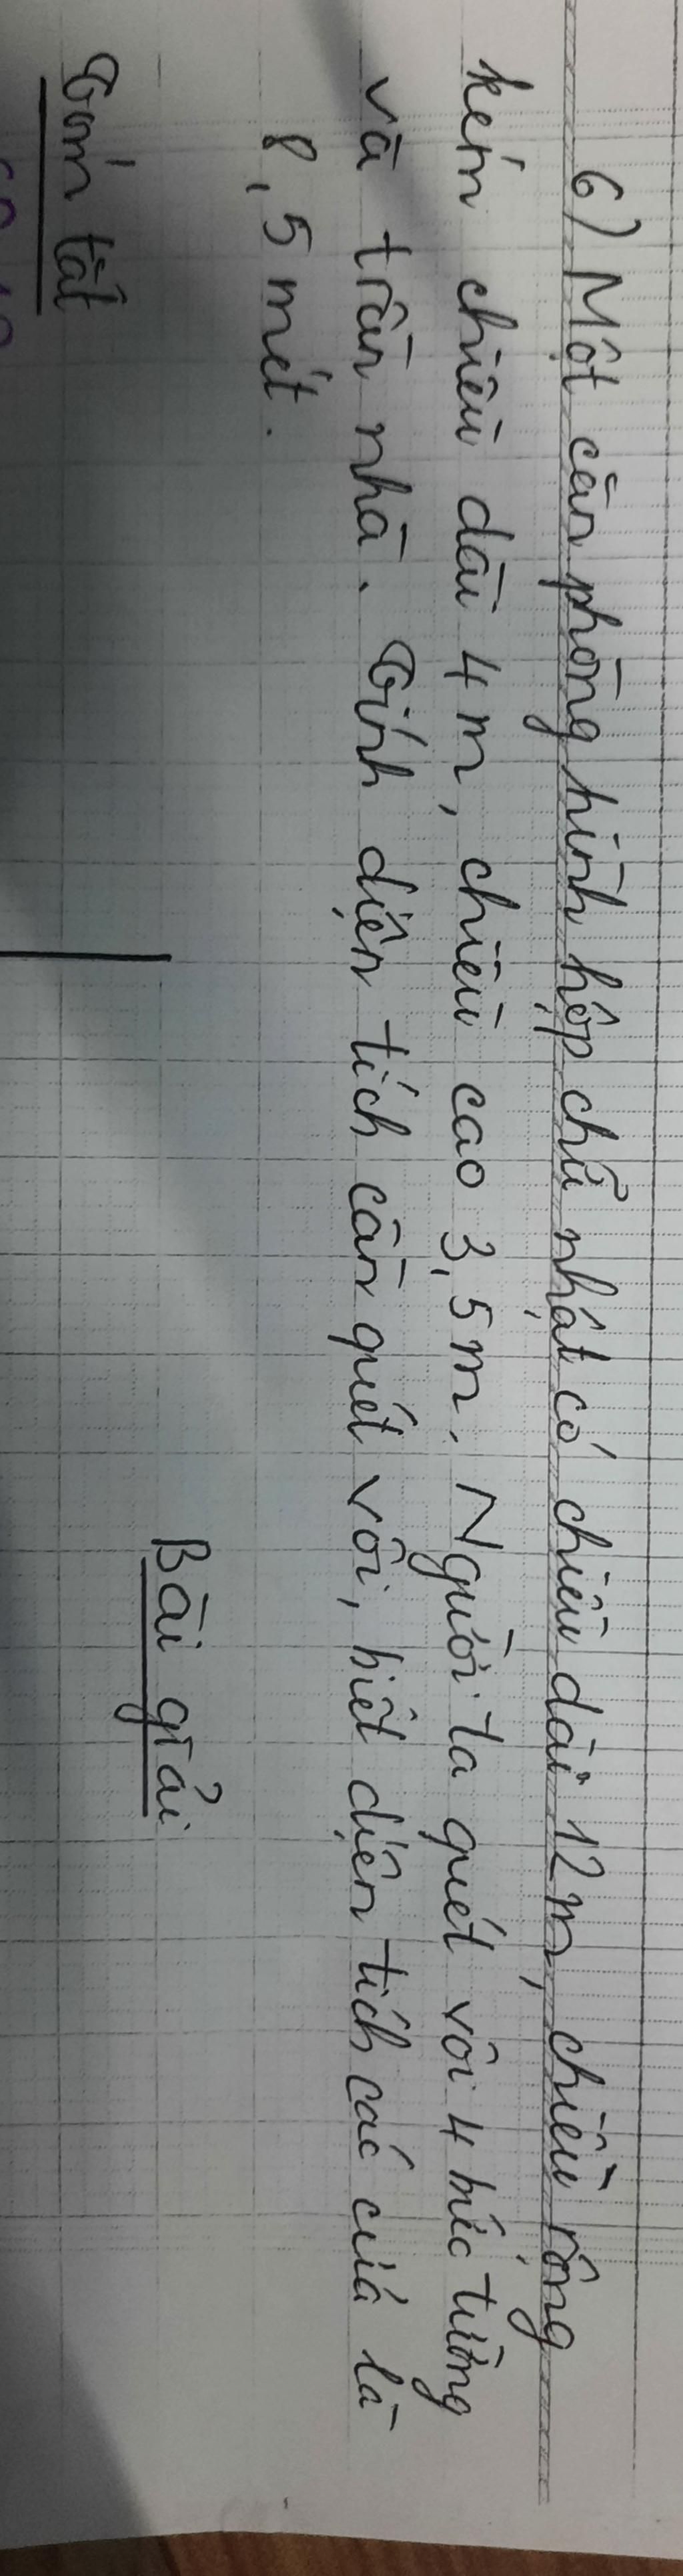 6) Một căn phòng hình hộp chữ nhật có chiều dài 12m, chiều rộng
kém chiều dài 4m, chiều cao 3,5m. Người ta quét vôi 4 bức tường
và trần nhà. Tính diện tích cần quét vôi, biết diện tích các cửa là
8,5 mét.
Bài giải
Tóm tắt